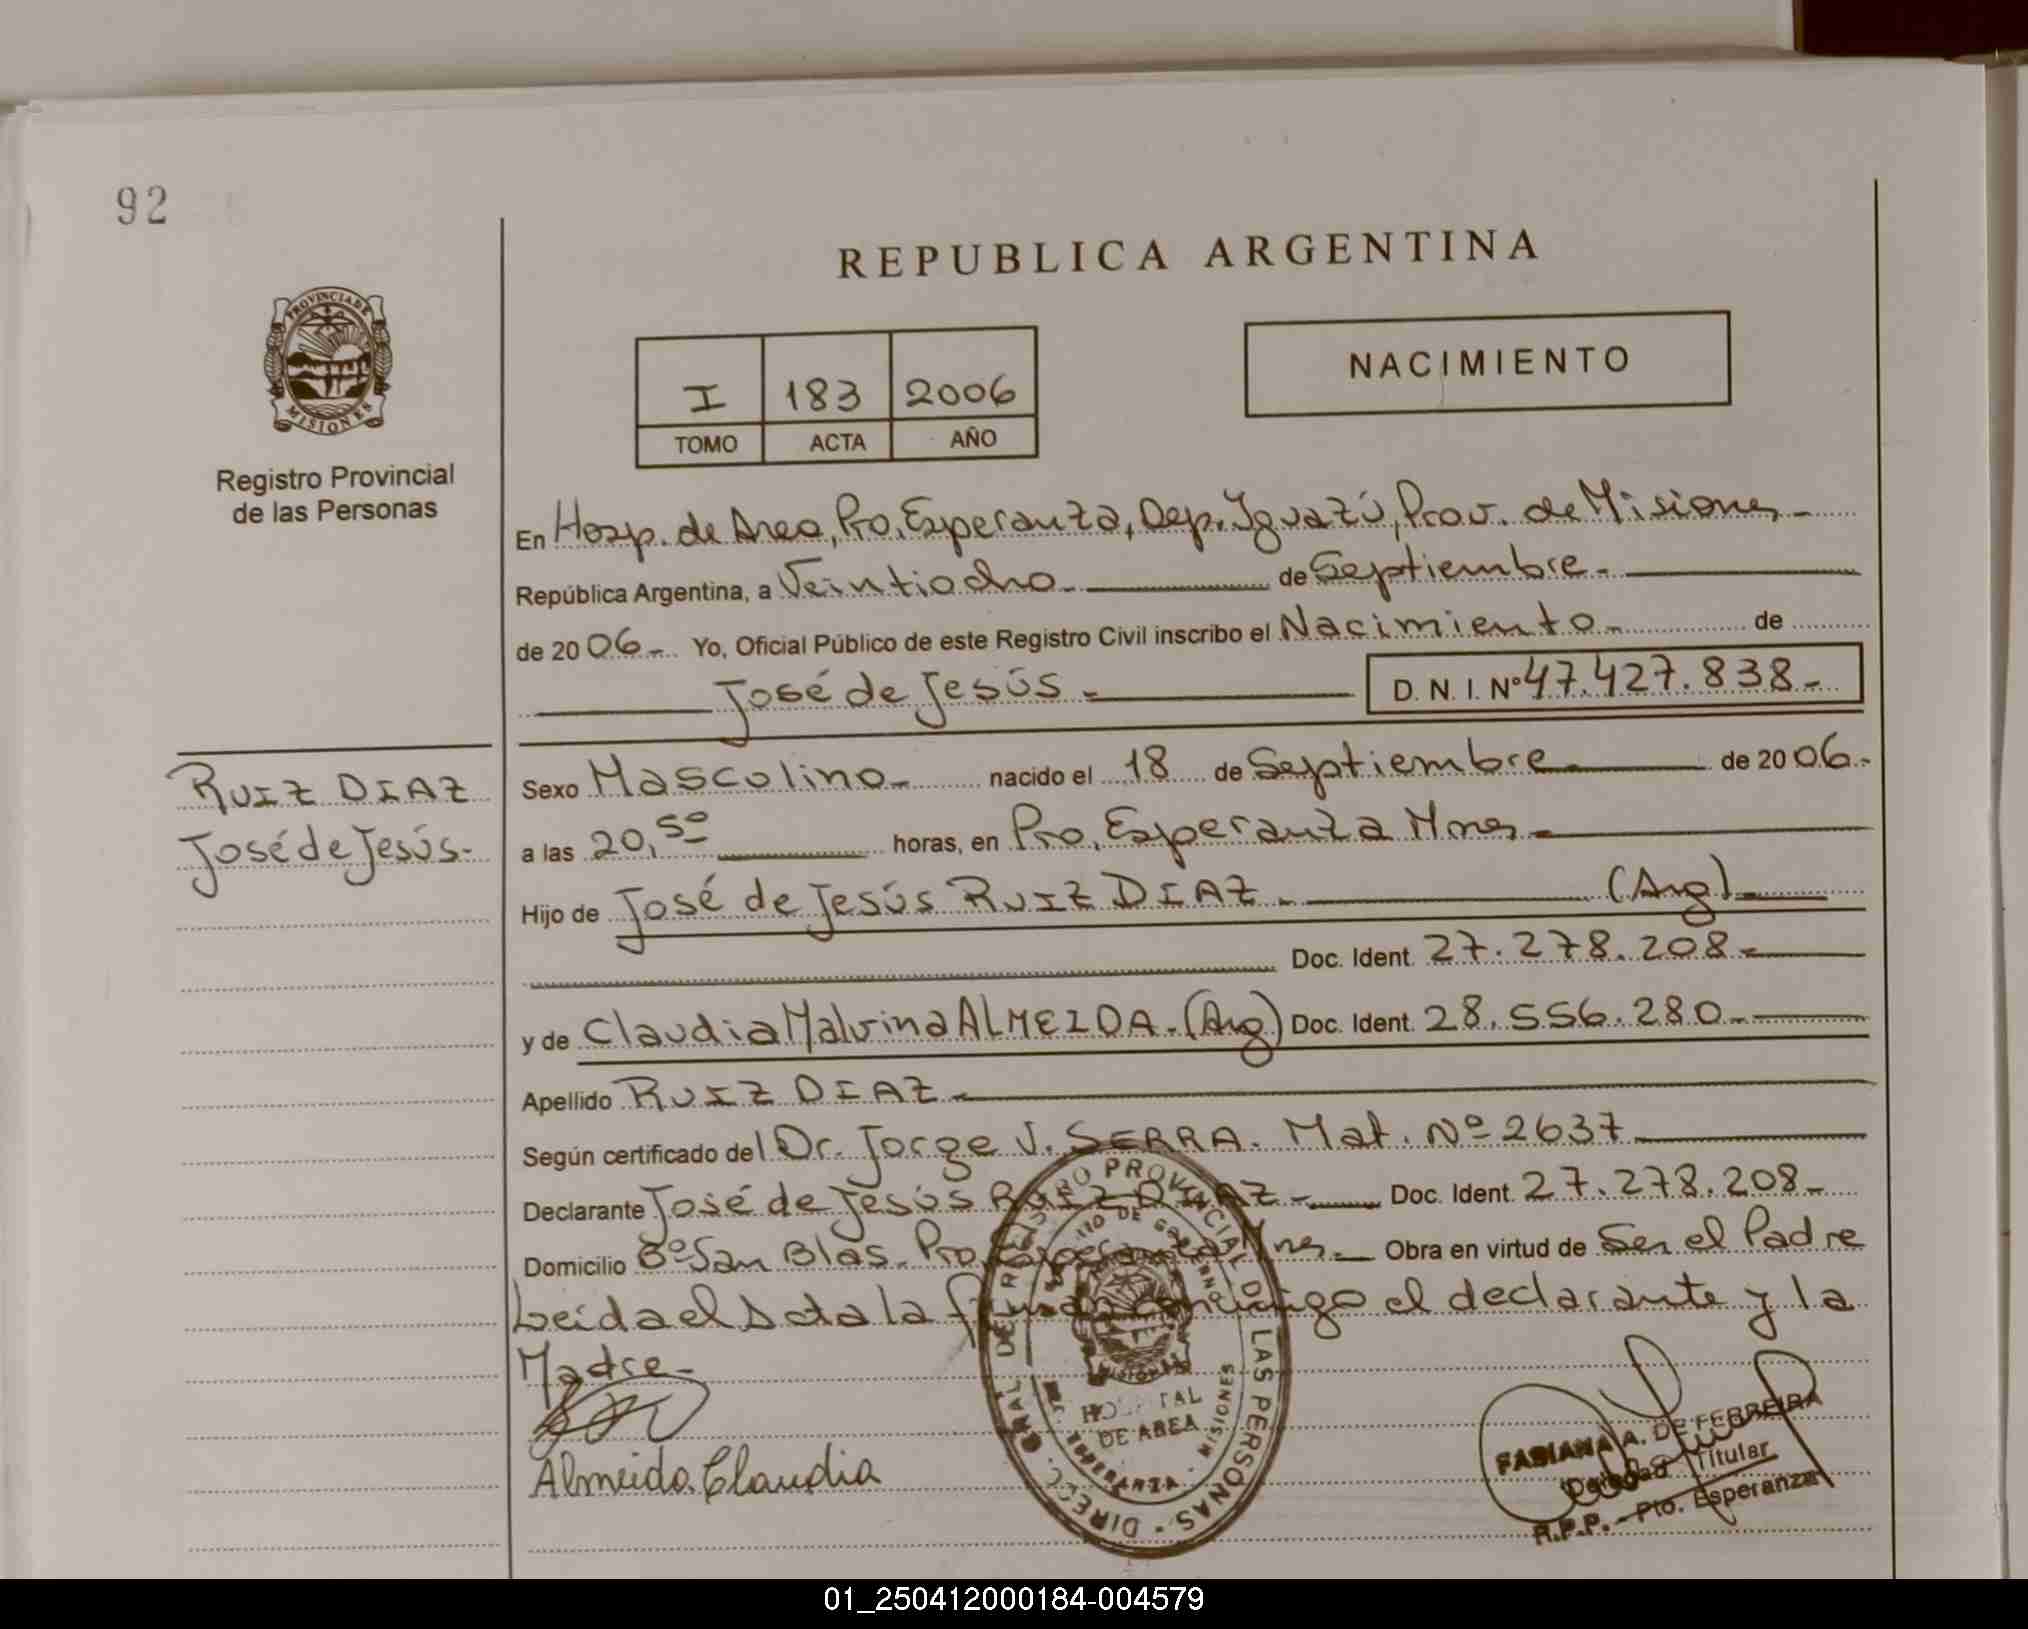 92
REPUBLICA ARGENTINA
PROVINCIA DE
MISIONES
Registro Provincial
de las Personas
I 183 2006
TOMO ACTA AÑO
NACIMIENTO
En Hosp. de Area, Pto. Esperanza, Dep. Iguazú, Prov. de Misiones -
República Argentina, a Veintiocho - de Septiembre -
de 2006 - Yo, Oficial Público de este Registro Civil inscribo el Nacimiento - de
José de Jesús - D. N. I. Nº 47.427.838 -
RUIZ DIAZ
José de Jesús -
Sexo Masculino - nacido el 18 de Septiembre - de 2006 -
a las 20,50 horas, en Pto. Esperanza Mnes -
Hijo de José de Jesús RUIZ DIAZ - (Arg) -
Doc. Ident. 27.278.208 -
y de Claudia Malvina ALMEIDA - (Arg) Doc. Ident. 28.556.280 -
Apellido RUIZ DIAZ -
Según certificado del Dr. Jorge V. SERRA. Mat. Nº 2637
Declarante José de Jesús RUIZ DIAZ - Doc. Ident. 27.278.208 -
Domicilio Bº San Blas - Pto. Esperanza Mnes - Obra en virtud de Ser el Padre
Leida el Acta la firman conmigo el declarante y la
Madre -
Almeida Claudia
DIRECC. GRAL. DEL REGISTRO PROVINCIAL DE LAS PERSONAS
HOSPITAL
DE AREA
ESPERANZA - MISIONES
FABIANA A. DE FERREIRA
Titular
R.P.P. - Pto. Esperanza
01_250412000184-004579